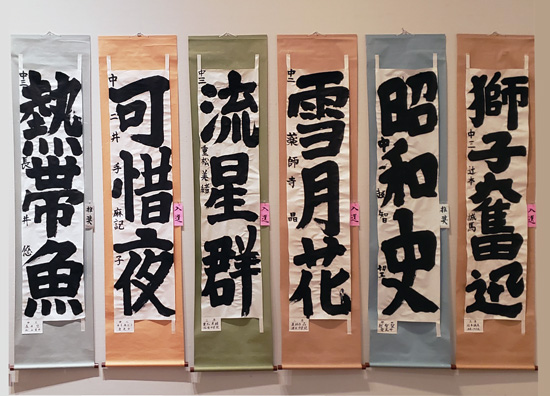 獅子奮迅
中二 辻本
入選
昭和史
中 越智
推奨
雪月花
中二 薬師寺 晶
入選
流星群
中三 重松美緒
入選
可惜夜
中二 井手 麻記子
入選
熱帯魚
中三 長井 悠
推奨